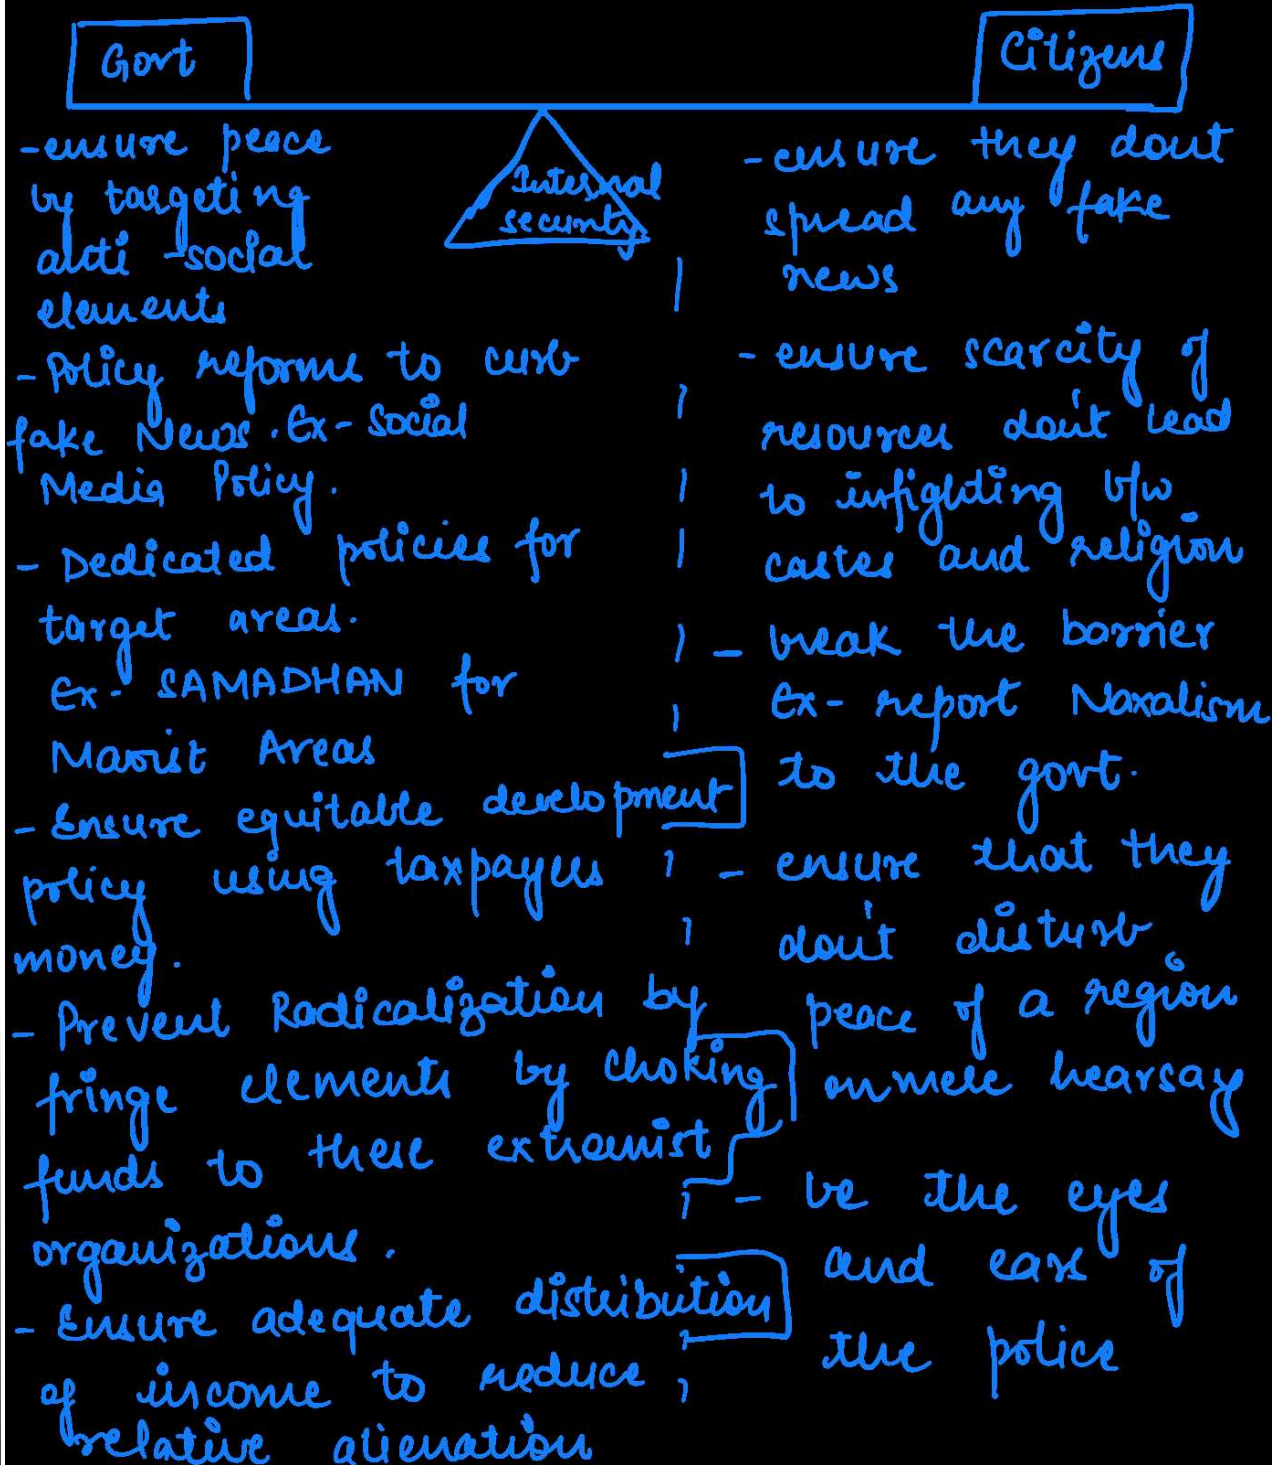 Govt
Citizens
Internal
security
-ensure peace
by targeting
anti-social
elements
- Policy reforms to curb
fake News. Ex- Social
Media Policy.
- Dedicated policies for
target areas.
Ex- SAMADHAN for
Maoist Areas
- Ensure equitable development
policy using taxpayers
money.
- Prevent Radicalization by
fringe elements by choking
funds to these extremist
organizations.
- Ensure adequate distribution
of income to reduce
relative alienation
- ensure they dont
spread any fake
news
- ensure scarcity of
resources don't lead
to infighting b/w
castes and religion
- break the barrier
Ex- report Naxalism
to the govt.
- ensure that they
don't disturb
peace of a region
on mere hearsay
- be the eyes
and ears of
the police